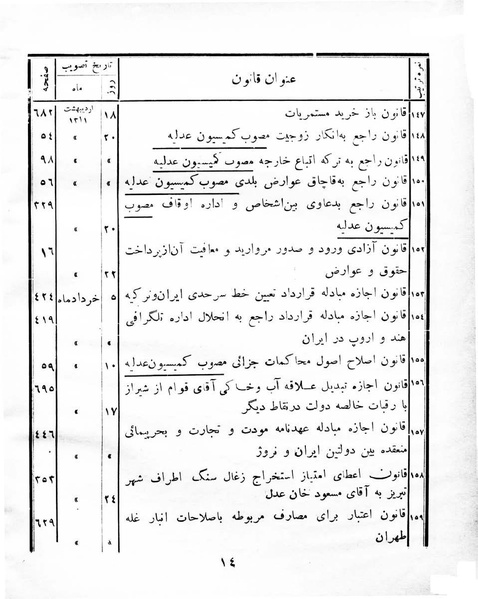 نمره ترتیب | عنوان قانون | تاریخ تصویب | صفحه
روز | ماه
۱۴۷ | قانون باز خرید مستمریات | ۱۸ | اردیبهشت ۱۳۱۱ | ۶۸۲
۱۴۸ | قانون راجع به‌انکار زوجیت مصوب کمیسیون عدلیه | ۲۰ | » | ۵٤
۱۴۹ | قانون راجع به ترکه اتباع خارجه مصوب کمیسیون عدلیه | » | » | ۹۸
۱۵۰ | قانون راجع به‌قاچاق عوارض بلدی مصوب کمیسیون عدلیه | » | » | ۵۶
۱۵۱ | قانون راجع بدعاوی بین‌اشخاص و اداره اوقاف مصوب | ۲۲۹
کمیسیون عدلیه | ۲۰ | »
۱۵۲ | قانون آزادی ورود و صدور مروارید و معافیت آن‌از‌پرداخت | ۱۶
حقوق و عوارض | ۲۲ | »
۱۵۳ | قانون اجازه مبادله قرارداد تعیین خط سرحدی ایران‌وترکیه | ۵ | خردادماه | ٤۲٤
۱۵٤ | قانون اجازه مبادله قرارداد راجع به انحلال اداره تلگرافی | ٤۱۹
هند و اروپ در ایران | » | »
۱۵۵ | قانون اصلاح اصول محاکمات جزائی مصوب کمیسیون‌عدلیه | ۱۰ | » | ۵۹
۱۵۶ | قانون اجازه تبدیل علاقه آب وخاکی آقای قوام از شیراز | ۶۹۵
با رقبات خالصه دولت در‌نقاط دیگر | ۱۷ | »
۱۵۷ | قانون اجازه مبادله عهدنامه مودت و تجارت و بحرپیمائی | ٤٤۶
منعقده بین دولتین ایران و نروژ | » | »
۱۵۸ | قانون اعطای امتیاز استخراج زغال سنگ اطراف شهر | ۳۵۳
تبریز به آقای مسعود خان عدل | ۲٤ | »
۱۵۹ | قانون اعتبار برای مصارف مربوطه باصلاحات انبار غله | ۶۲۹
طهران | » | »
۱٤